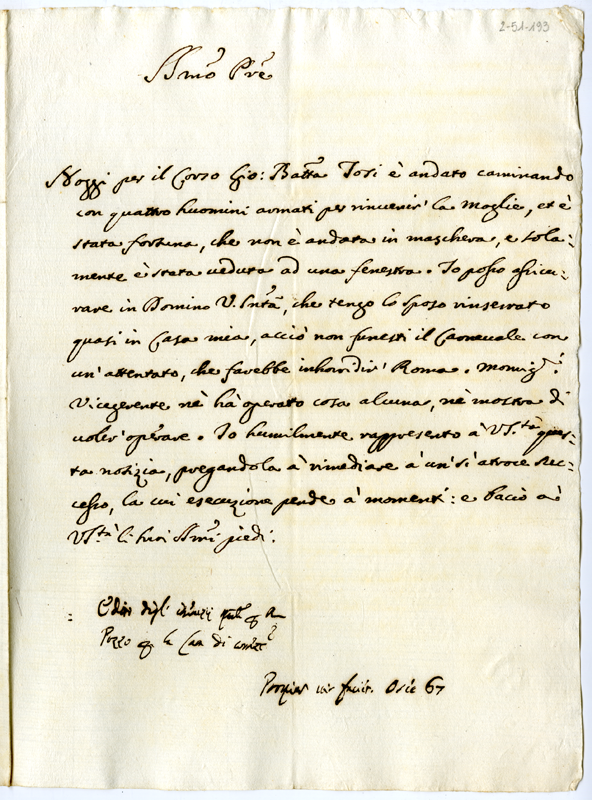 2-51-193
SSmo Pre
Hoggi per il Corso Gio: Batta Tosi è andato caminando
con quattro huomini armati per rinvenir' la Moglie, et è
stata fortuna, che non è andata in maschera, e sola-
mente è stata veduta ad una fenestra. Io posso assicu-
rare in Domino V. Sntà, che tengo lo sposo rinserrato
quasi in Casa mia, acciò non funesti il Carnevale con
un' attentato, che farebbe inhorridir' Roma. Monsigr.
Vicegerente nè hà operato cosa alcuna, nè mostra di
voler' operare. Io humilmente rappresento à V. Stà ques-
ta notizia, pregandola à rimediare à un' sì atroce suc-
cesso, la cui esecuzione pende à momenti: e bacio à
V. Stà li suoi SSmi piedi.
Pozzo la di
67